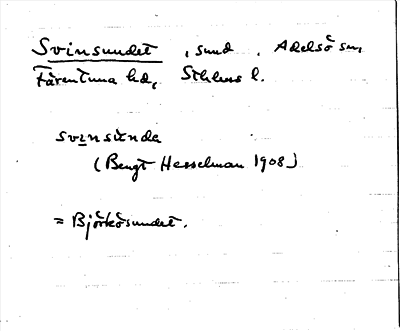 Svinsundet, sund, Adelsö sn,
Färentuna hd, Sthlms l.
svinsunda
(Bengt Hesselman 1908)
= Björkösundet.